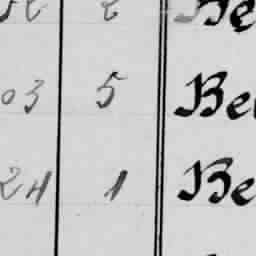 2 Be
03 5 Be
24 1 Be